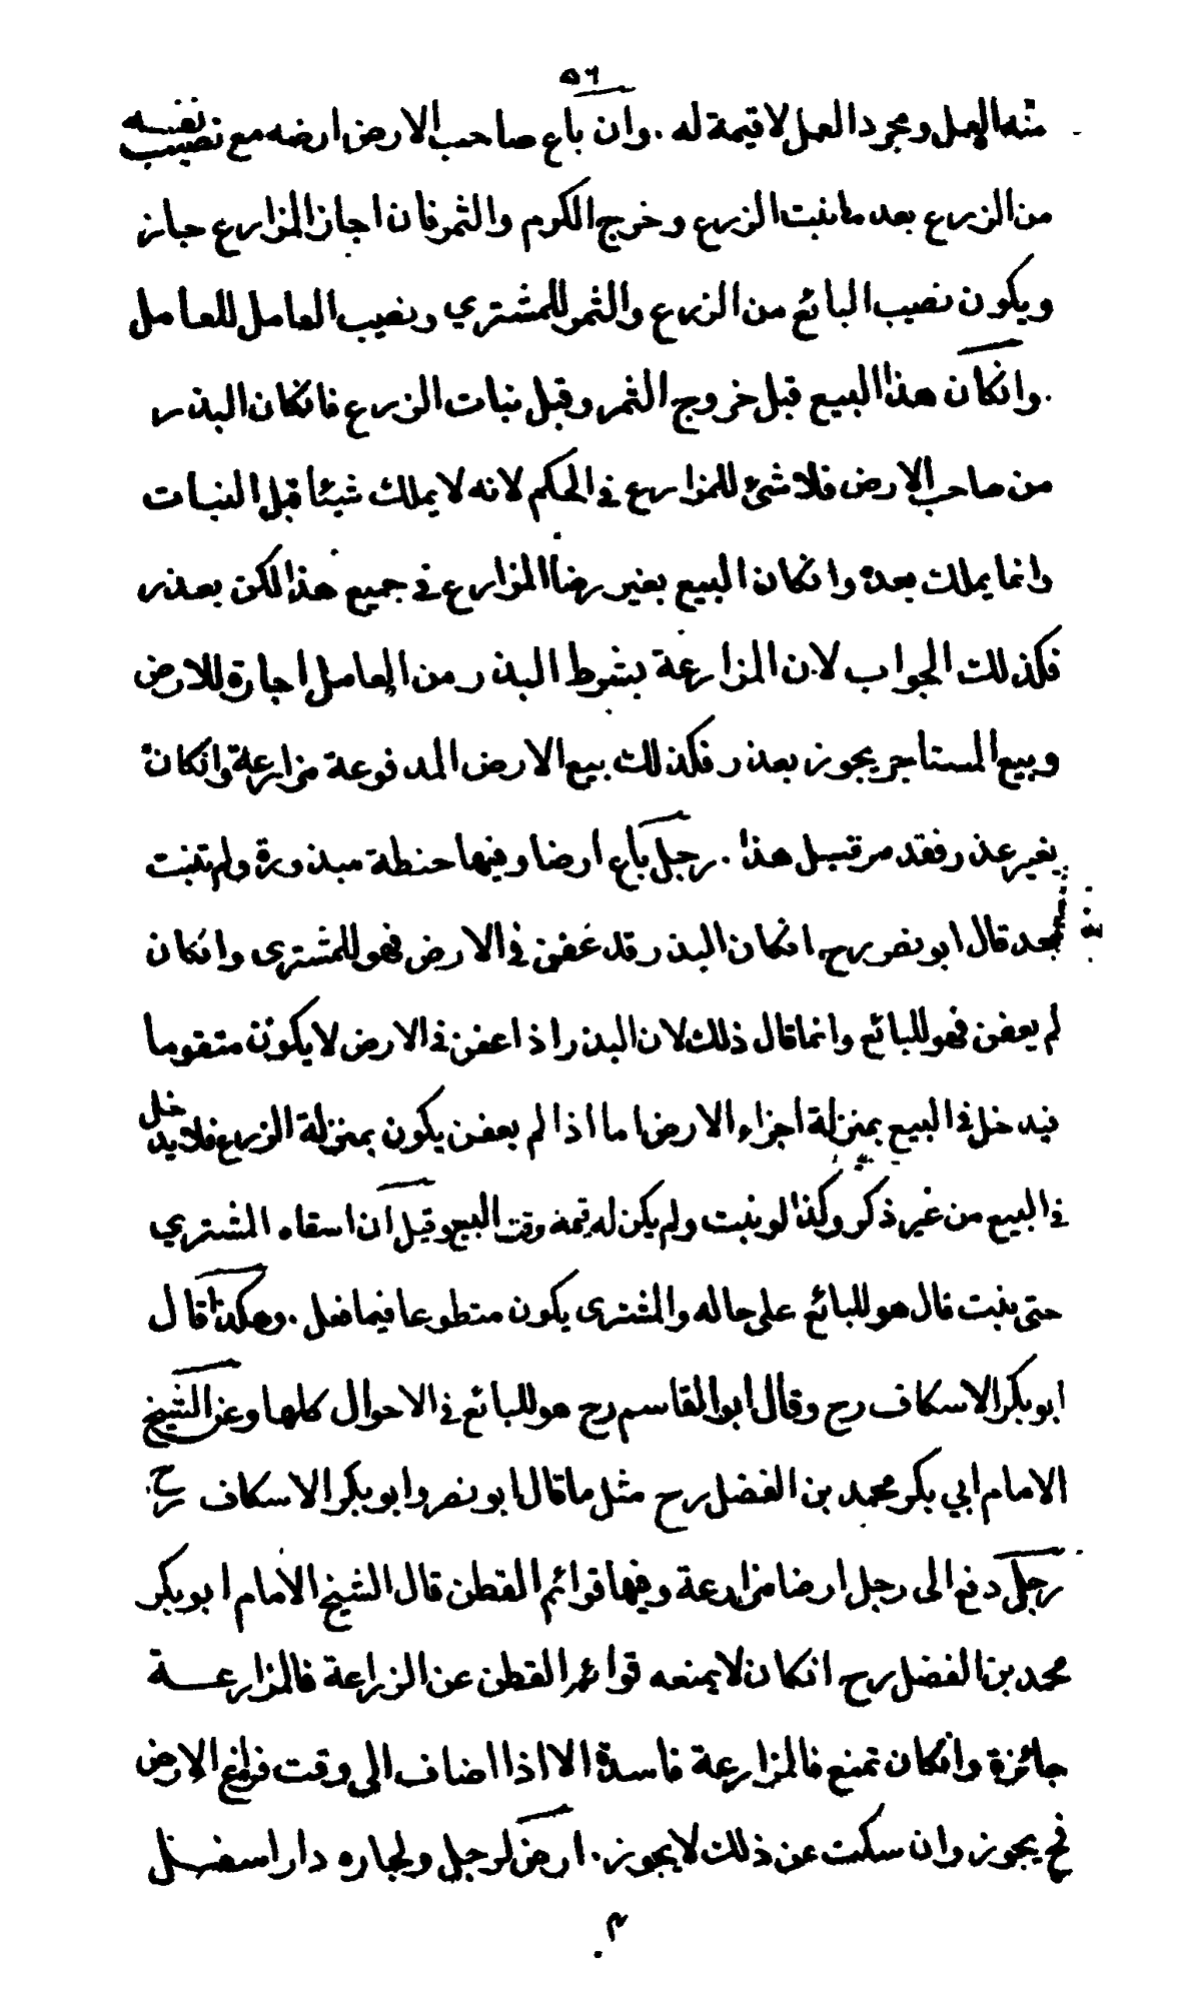 ٥٦
منه العمل ومجرد العمل لا قيمة له . وان باع صاحب الارض ارضه مع نصيبه
من الزرع بعد ما نبت الزرع وخرج الكوم والثمر فان اجاز المزارع جاز
ويكون نصيب البائع من الزرع والثمر للمشتري ونصيب العامل للعامل
. وانكان هذا البيع قبل خروج الثمر وقبل نبات الزرع فانكان البذر
من صاحب الارض فلا شئ للمزارع في الحكم لانه لا يملك شيئا قبل النبات
وانما يملك بعده وانكان البيع بغير رضا المزارع في جميع هذا لكن بعذر
فكذلك الجواب لان المزارعة بشرط البذر من العامل اجارة للارض
وبيع المستاجر يجوز بعذر فكذلك بيع الارض المدفوعة مزارعة وانكان
بغير عذر فقد مر قبيل هذا . رجل باع ارضا وفيها حنطة مبذورة ولم تنبت
بعد قال ابو نصر رح انكان البذر قد عفن في الارض فهو للمشترى وانكان
لم يعفن فهو للبائع وانما قال ذلك لان البذر اذا عفن في الارض لا يكون متقوما
فيدخل في البيع بمنزلة اجزاء الارض اما اذا لم يعفن يكون بمنزلة الزرع فلا يدخل
في البيع من غير ذكر وكذا لو نبت ولم يكن له قيمة وقت البيع وقيل ان اسقاه المشتري
حتى ينبت قال هو للبائع على حاله والمشترى يكون متطوعا فيما فعل . وهكذا قال
ابو بكر الاسكاف رح وقال ابو القاسم رح هو للبائع في الاحوال كلها وعن الشيخ
الامام ابي بكر محمد بن الفضل رح مثل ما قال ابو نصر وابو بكر الاسكاف رح
رجل دفع الى رجل ارضا مزارعة وفيها قوائم القطن قال الشيخ الامام ابو بكر
محمد بن الفضل رح انكان لا يمنعه قوائم القطن عن الزراعة فالمزارعة
جائزة وانكان تمنع فالمزارعة فاسدة الا اذا اضاف الى وقت فراغ الارض
فح يجوز وان سكت عن ذلك لا يجوز . ارض لرجل ولجاره دار اسفل